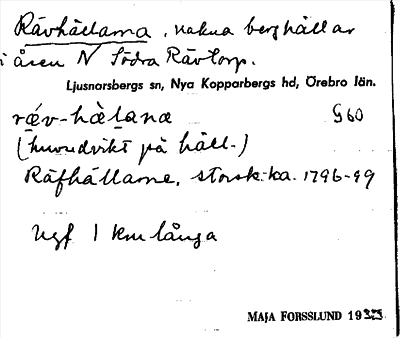 Rävhällarna, nakna berghällar
i åsen N Södra Rävtorp.
Ljusnarsbergs sn, Nya Kopparbergs hd, Örebro län.
ræv-hàlana G60
(huvudvikt på häll-)
Räfhällarne, storsk:ka. 1796-99
Ugf 1 km långa
MAJA FORSSLUND 19